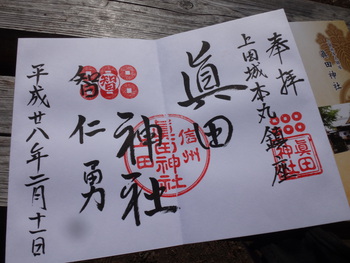 奉拝
上田城本丸鎮座
眞田
神社
智仁勇
平成廿八年二月十一日
信州
眞田神社
上田
眞田
神社
眞田神社